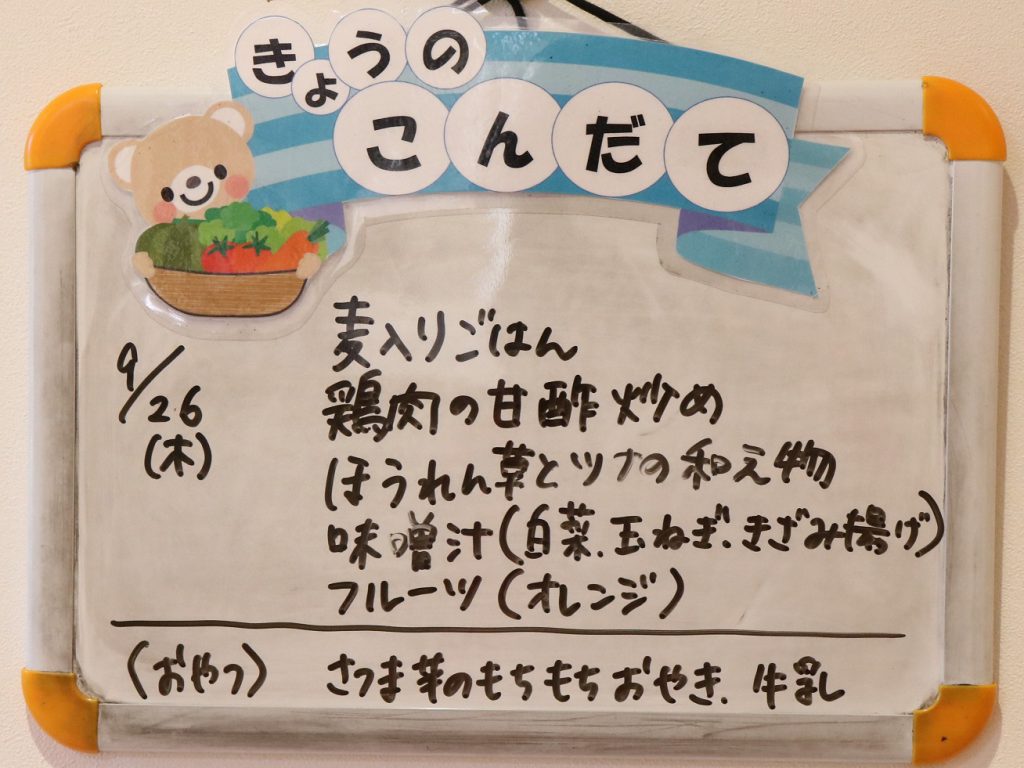 きょうの
こんだて
9/26
(木)
麦入りごはん
鶏肉の甘酢炒め
ほうれん草とツナの和え物
味噌汁(白菜、玉ねぎ、きざみ揚げ)
フルーツ(オレンジ)
(おやつ) さつま芋のもちもちおやき、牛乳